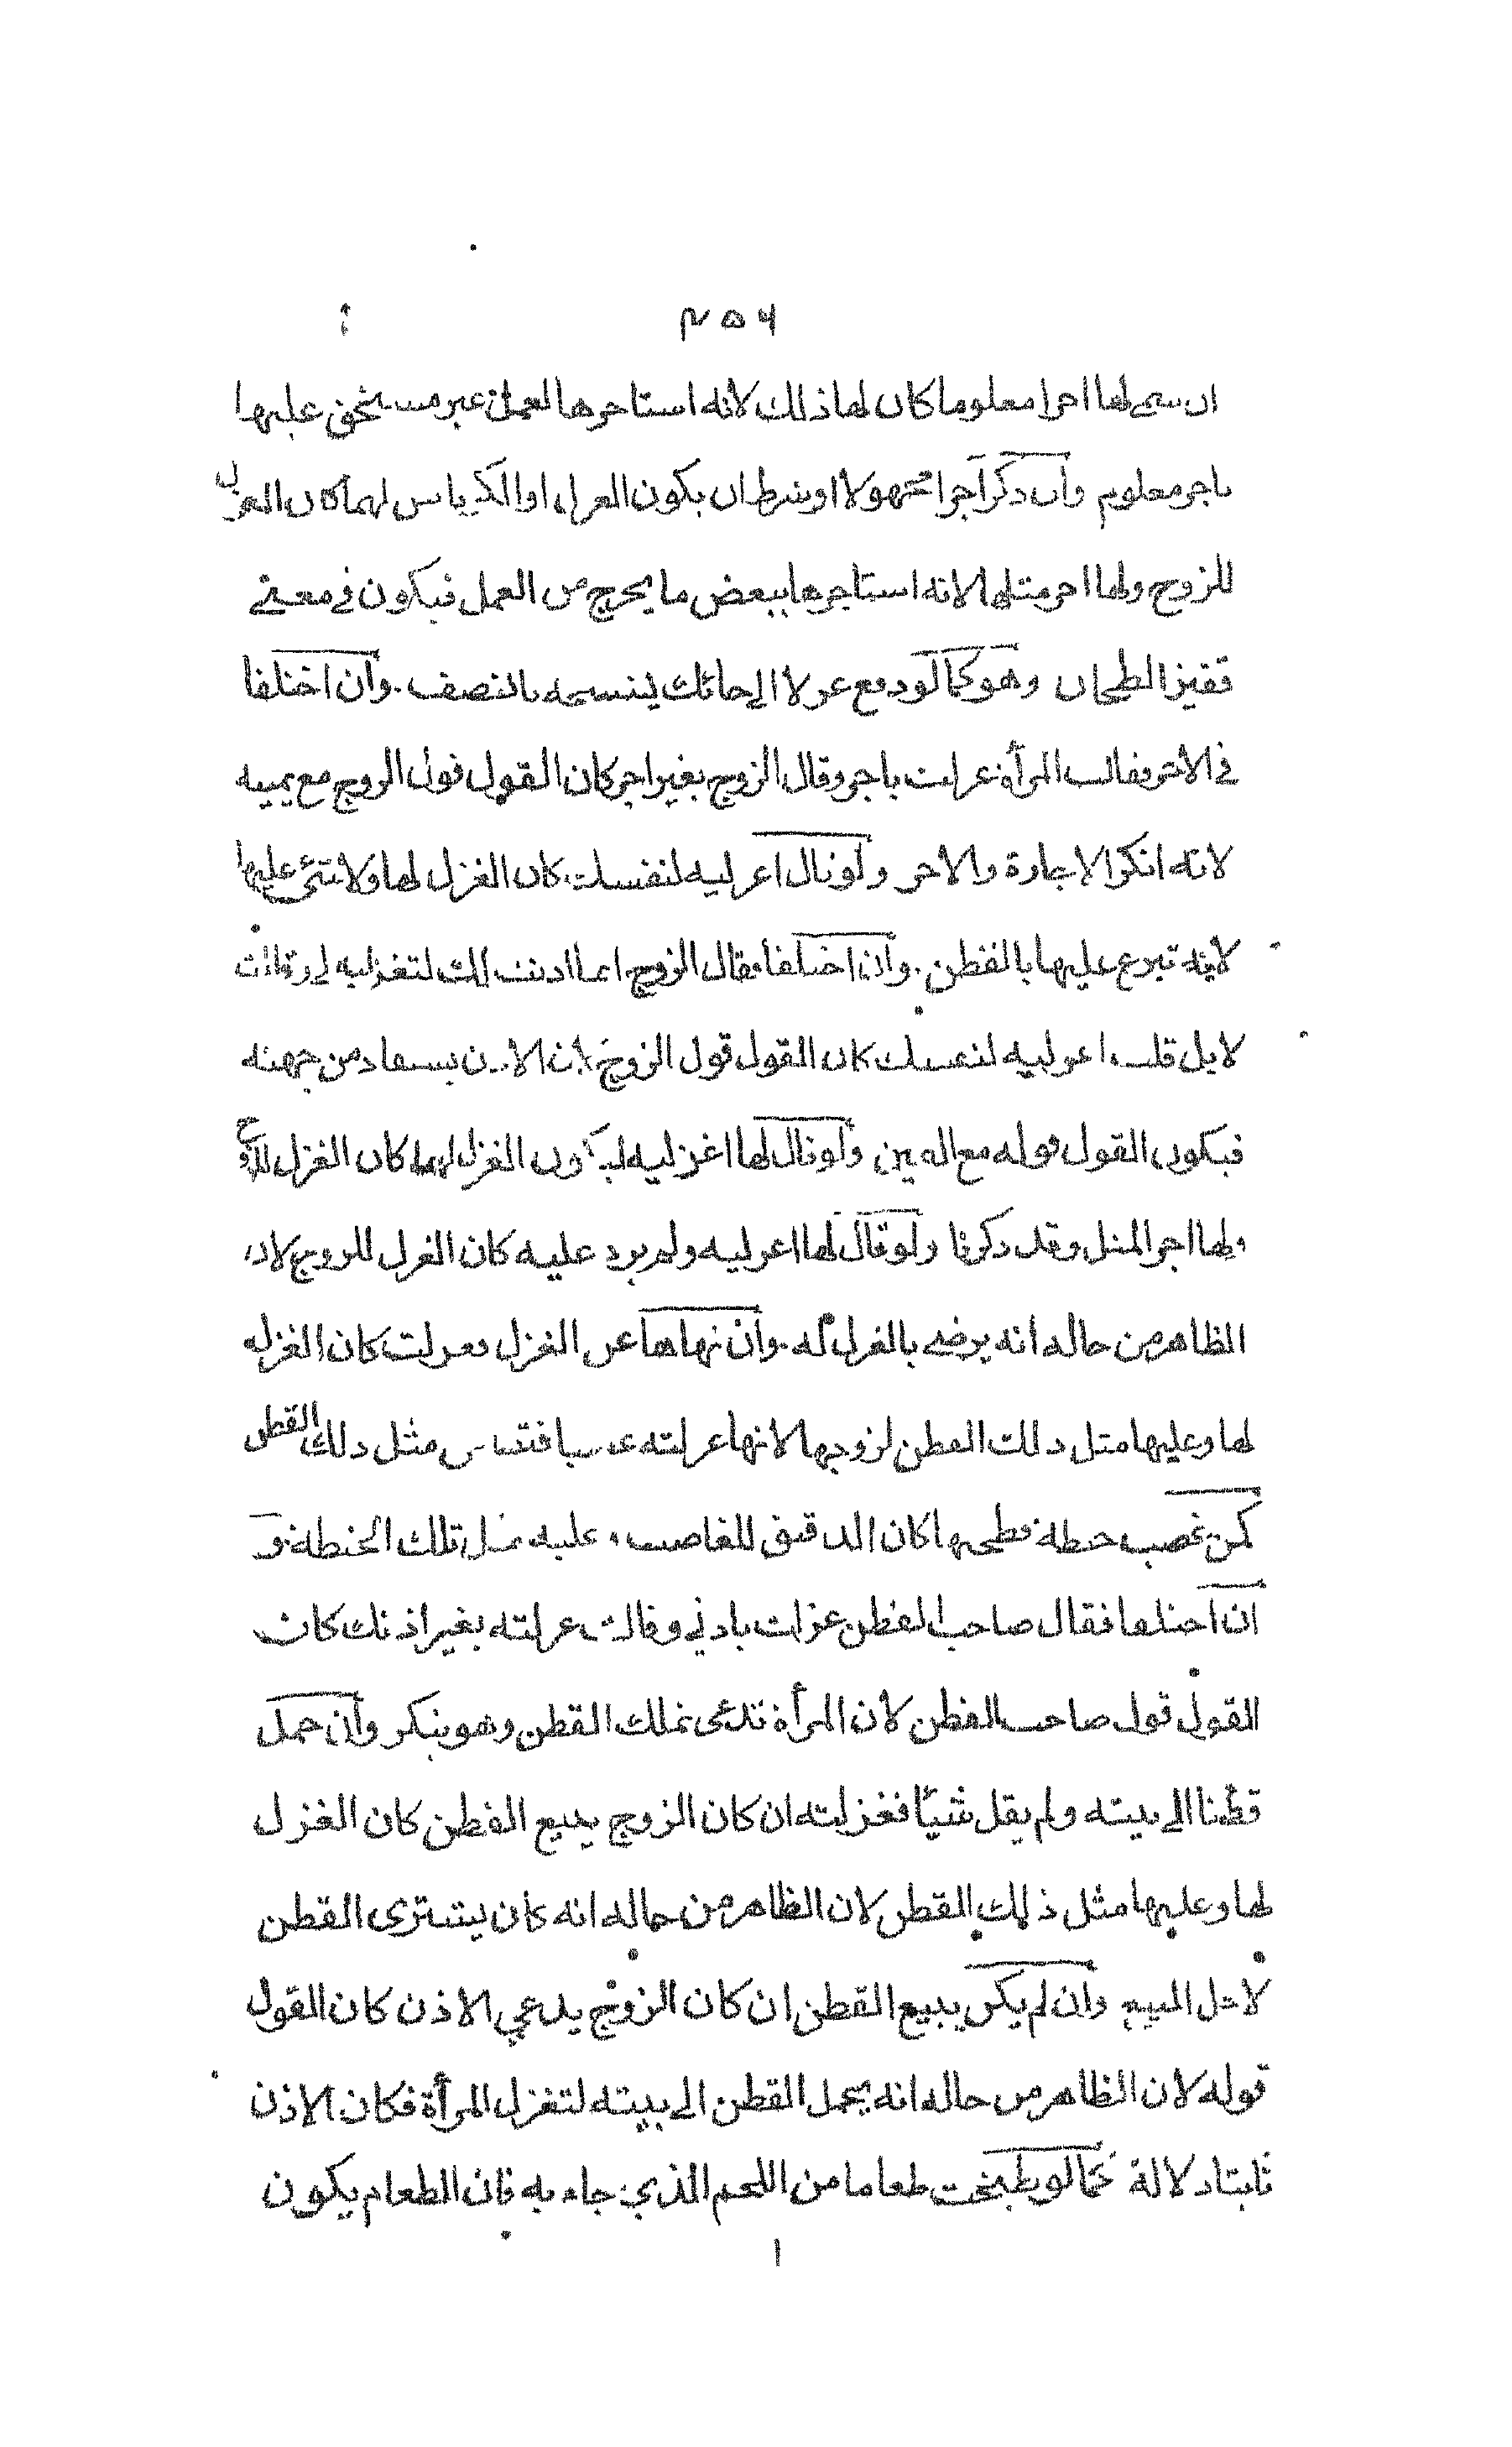 ٤٥٦
ان سمى لها اجرا معلوما كان لها ذلك لانه استاجرها لعمل غير مستحق عليها
باجر معلوم وان ذكر اجرا مجهولا او شرط ان يكون الغزل او الكرباس لهما كان الغزل
للزوج ولها اجر مثلها لانه استاجرها ببعض ما يخرج من العمل فيكون في معنى
قفيز الطحان وهو كما لو دفع غزلا الى حائك لينسجه بالنصف وان اختلفا
في الاجر فقالت المرأة غزلت باجر وقال الزوج بغير اجر كان القول قول الزوج مع يمينه
لانه انكر الاجارة والاجر ولو قال اغزليه لنفسك كان الغزل لها ولا شئ عليها
لانه تبرع عليها بالقطن وان اختلفا فقال الزوج انما اذنت لك لتغزليه لي وقالت
لا بل قلت اغزليه لنفسك كان القول قول الزوج لان الاذن يستفاد من جهته
فيكون القول قوله مع اليمين ولو قال لها اغزليه ليكون الغزل لهما كان الغزل للزوج
ولها اجر المثل وقد ذكرنا ولو قال لها اغزليه ولم يزد عليه كان الغزل للزوج لان
الظاهر من حاله انه يرضى بالغزل له وان نهاها عن الغزل فغزلت كان الغزل
لها وعليها مثل ذلك القطن لزوجها لانها غزلته غصبا فتقاس مثل ذلك القطن
كمن غصب حنطة فطحنها كان الدقيق للغاصب وعليه مثل تلك الحنطة و
ان اختلفا فقال صاحب القطن غزلت باذني وقالت غزلته بغير اذنك كان
القول قول صاحب القطن لان المرأة تدعى تملك القطن وهو ينكر وان حمل
قطنا الى بيته ولم يقل شيئا فغزلته ان كان الزوج يبيع القطن كان الغزل
لها وعليها مثل ذلك القطن لان الظاهر من حاله انه كان يشترى القطن
لاجل البيع وان لم يكن يبيع القطن ان كان الزوج يدعي الاذن كان القول
قوله لان الظاهر من حاله انه يحمل القطن الى بيته لتغزل المرأة فكان الاذن
ثابتا دلالة كما لو طبخت طعاما من اللحم الذي جاء به فان الطعام يكون